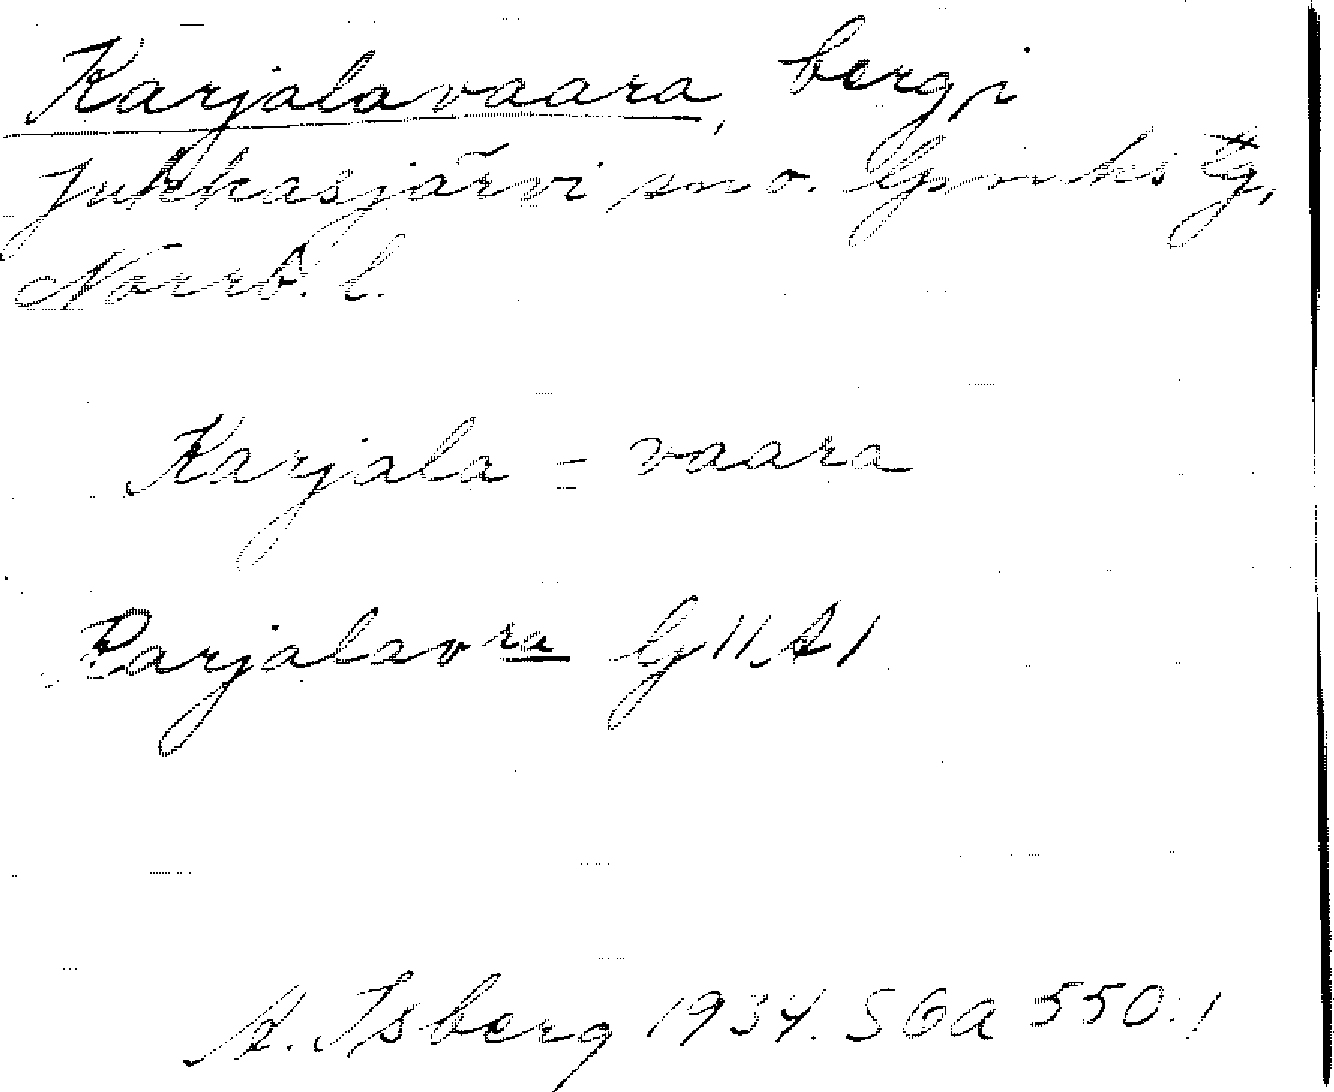 Karjalavaara, berg, i
Jukkasjärvi sn o. lpmks tg,
Norrb. l.
Karjala - vaara
Parjalavra G 11 A 1
A. Isberg 1934. SGA 550:1